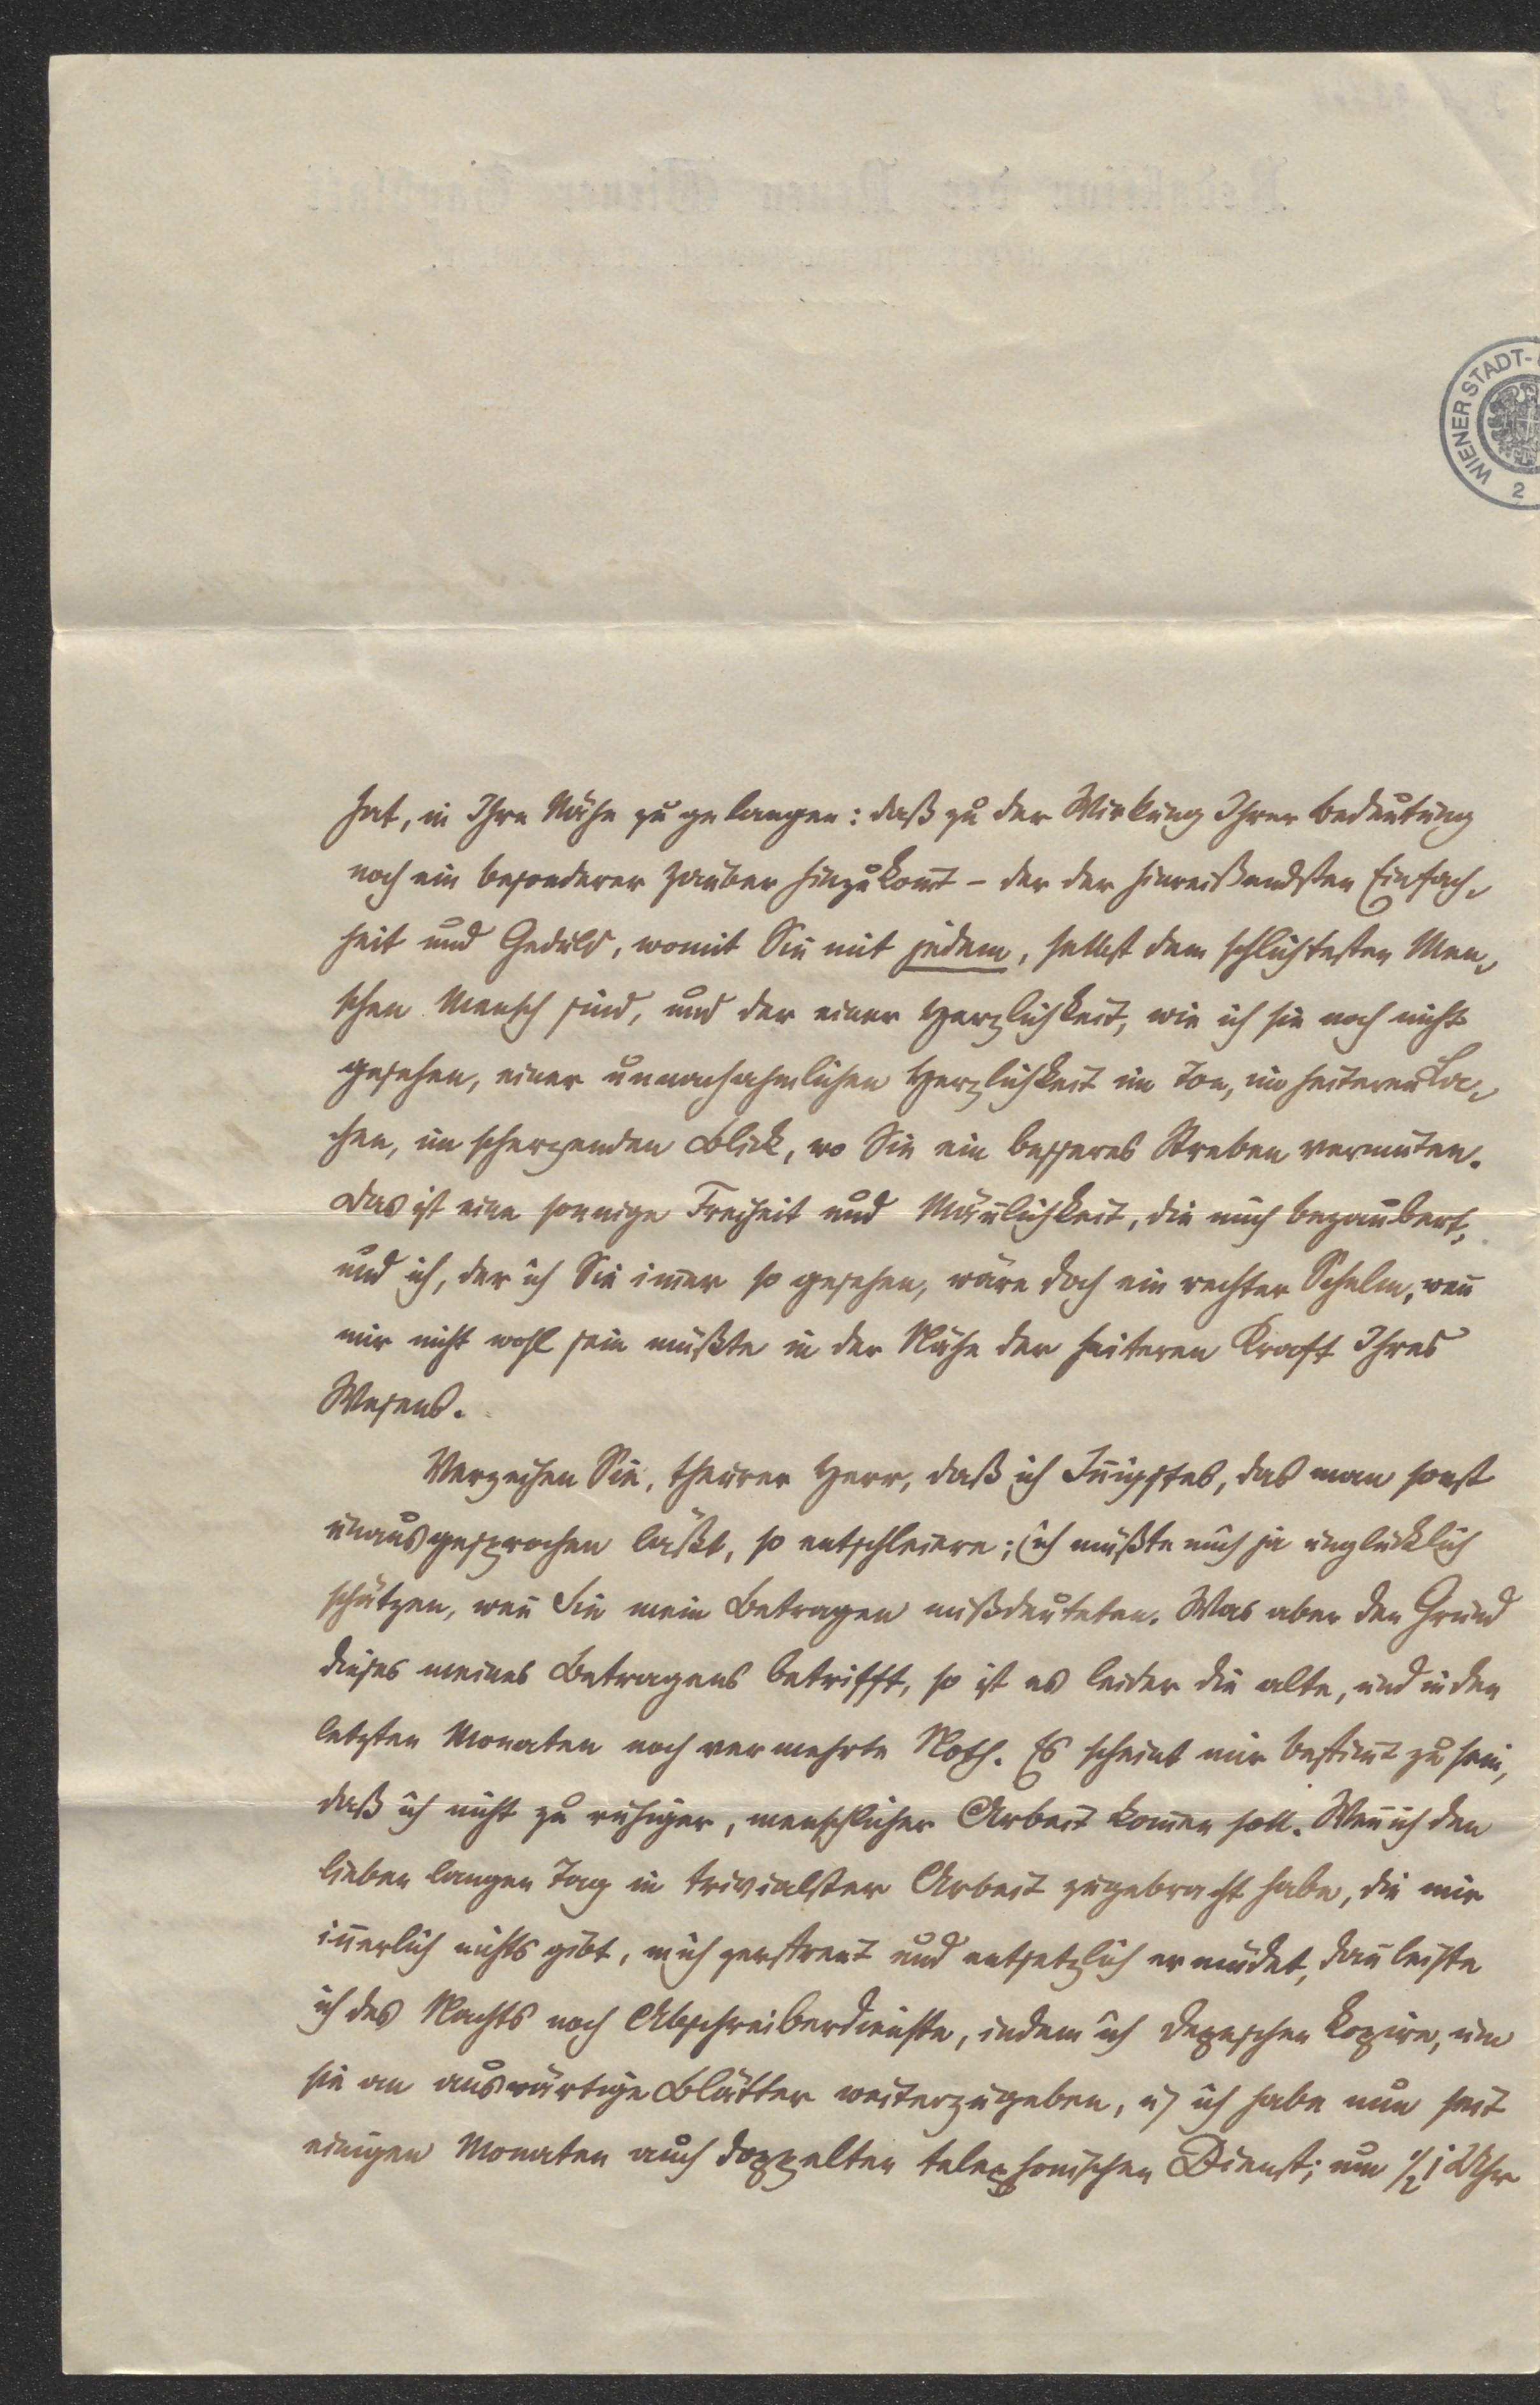 WIENER STADT-
2
hat, in Ihre Nähe zu gelangen: daß zu der Wirkung Ihrer Bedeutung
noch ein besonderer Zauber hinzukom̅t – der der hinreißendsten Einfach-
heit und Geduld, womit Sie mit jedem, selbst dem schlichtesten Men-
schen Mensch sind, und der einer Herzlichkeit, wie ich sie noch nicht
gesehen, einer unnachahmlichen Herzlichkeit im Ton, im heiteren La-
chen, im scherzenden Blick, wo Sie ein besseres Streben vermuten.
Das ist eine sonnige Freiheit und Män̅lichkeit, die mich bezaubert,
und ich, der ich Sie im̅er so gesehen, wäre doch ein rechter Schelm, wen̅
mir nicht wohl sein müßte in der Nähe der heiteren Kraft Ihres
Wesens.
Verzeihen Sie, theurer Herr, daß ich In̅igstes, das man sonst
unausgesprochen läßt, so entschleiere; ich müßte mich ja unglücklich
schätzen, wen̅ Sie mein Betragen mißdeuteten. Was aber den Grund
dieses meines Betragens betrifft, so ist es leider die alte, und in den
letzten Monaten noch vermehrte Noth. Es scheint mir bestim̅t zu sein,
daß ich nicht zu ruhiger, menschlicher Arbeit kom̅en soll. Wen̅ ich den
lieben langen Tag in trivialster Arbeit zugebracht habe, die mir
in̅erlich nichts gibt, mich zerstreut und entsetzlich ermüdet, dan̅ leiste
ich des Nachts noch Abschreiberdienste, indem ich Depeschen kopire, um
sie an auswärtige Blätter weiterzugeben, u) ich habe nun seit
einigen Monaten auch doppelten telephonischen Dienst; um ½1 Uhr